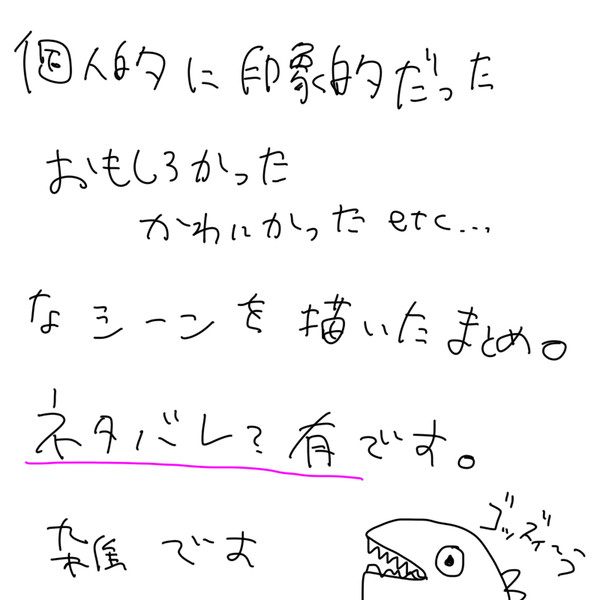 個人的に印象的だった
おもしろかった
かわいかった etc...
なシーンを描いたまとめ。
ネタバレ?有です。
雑です